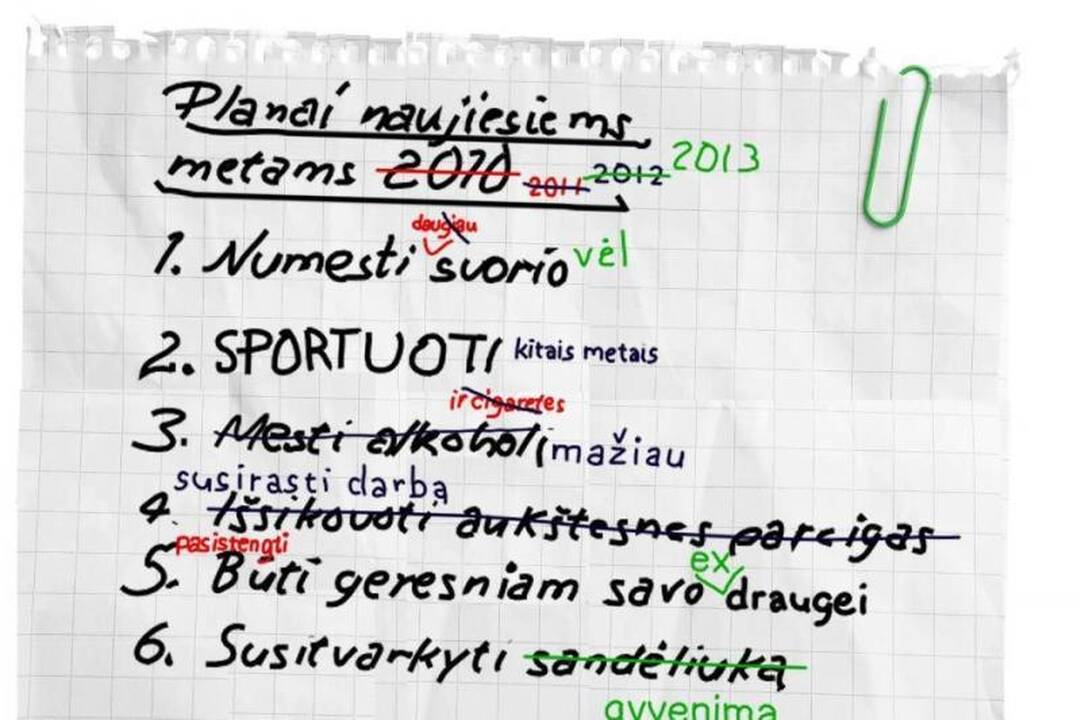 Planai naujiesiems
metams 2010 2011 2012 2013
daugiau
1. Numesti svorio vėl
2. SPORTUOTI kitais metais
ir cigaretes
3. Mesti alkoholį mažiau
susirasti darbą
4. Išsikovoti aukštesnes pareigas
pasistengti
ex
5. Būti geresniam savo draugei
6. Susitvarkyti sandėliuką
gyvenimą